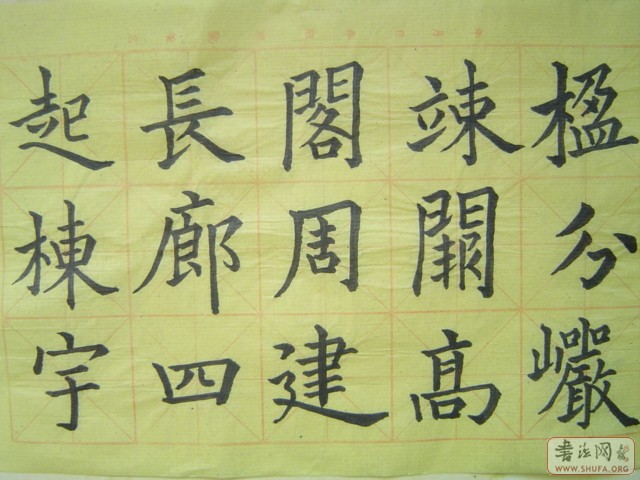 楹分巗
竦闕髙
閣周建
長廊四
起棟宇
書法网
WWW.SHUFA.ORG